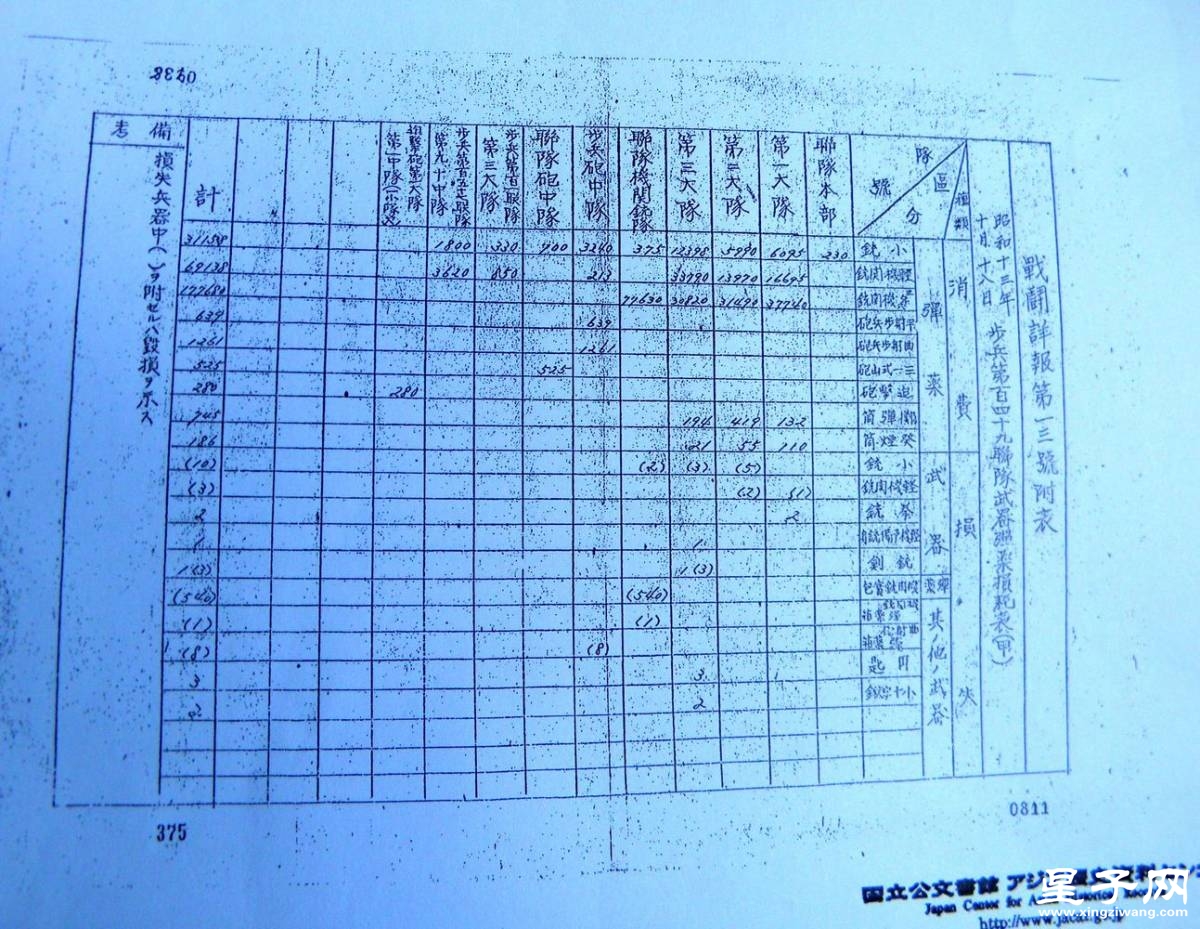 戰鬪詳報第一三號附表
昭和十三年
十月十八日
步兵第百四十九聯隊武器彈藥損耗表(甲)
種類
區分
隊號
聯隊本部
第一大隊
第二大隊
第三大隊
聯隊機關銃隊
步兵砲中隊
聯隊砲中隊
第三大隊
第九十中隊
計
備考
消費
彈藥
小銃 230 6095 5990 12398 375 3240 900 330 1800 31158
輕機關銃 16695 13970 33790 213 850 3620 69138
重機關銃 37740 31490 30820 77630 177680
平射步兵砲 639 639
曲射步兵砲 1261 1261
四一式山砲 525 525
迫擊砲 280 280
擲彈筒 132 419 194 745
發煙筒 110 55 21 186
損失
武器
小銃 (5) (3) (2) (10)
輕機關銃 (1) (2) (3)
拳銃 2 2
1 1
銃劍 1(3) 1(3)
彈藥
(540) (540)
其他ノ武器
(1) (1)
(8) (8)
円匙 3 3
小十字鍬 2 2
損失兵器中( )ヲ附セルハ毀損ヲ示ス
0438
375
0811
国立公文書館 アジア歴史資料センター
Japan Center for Asian Historical Records
http://www.jacar.go.jp
星子网
www.xingziwang.com